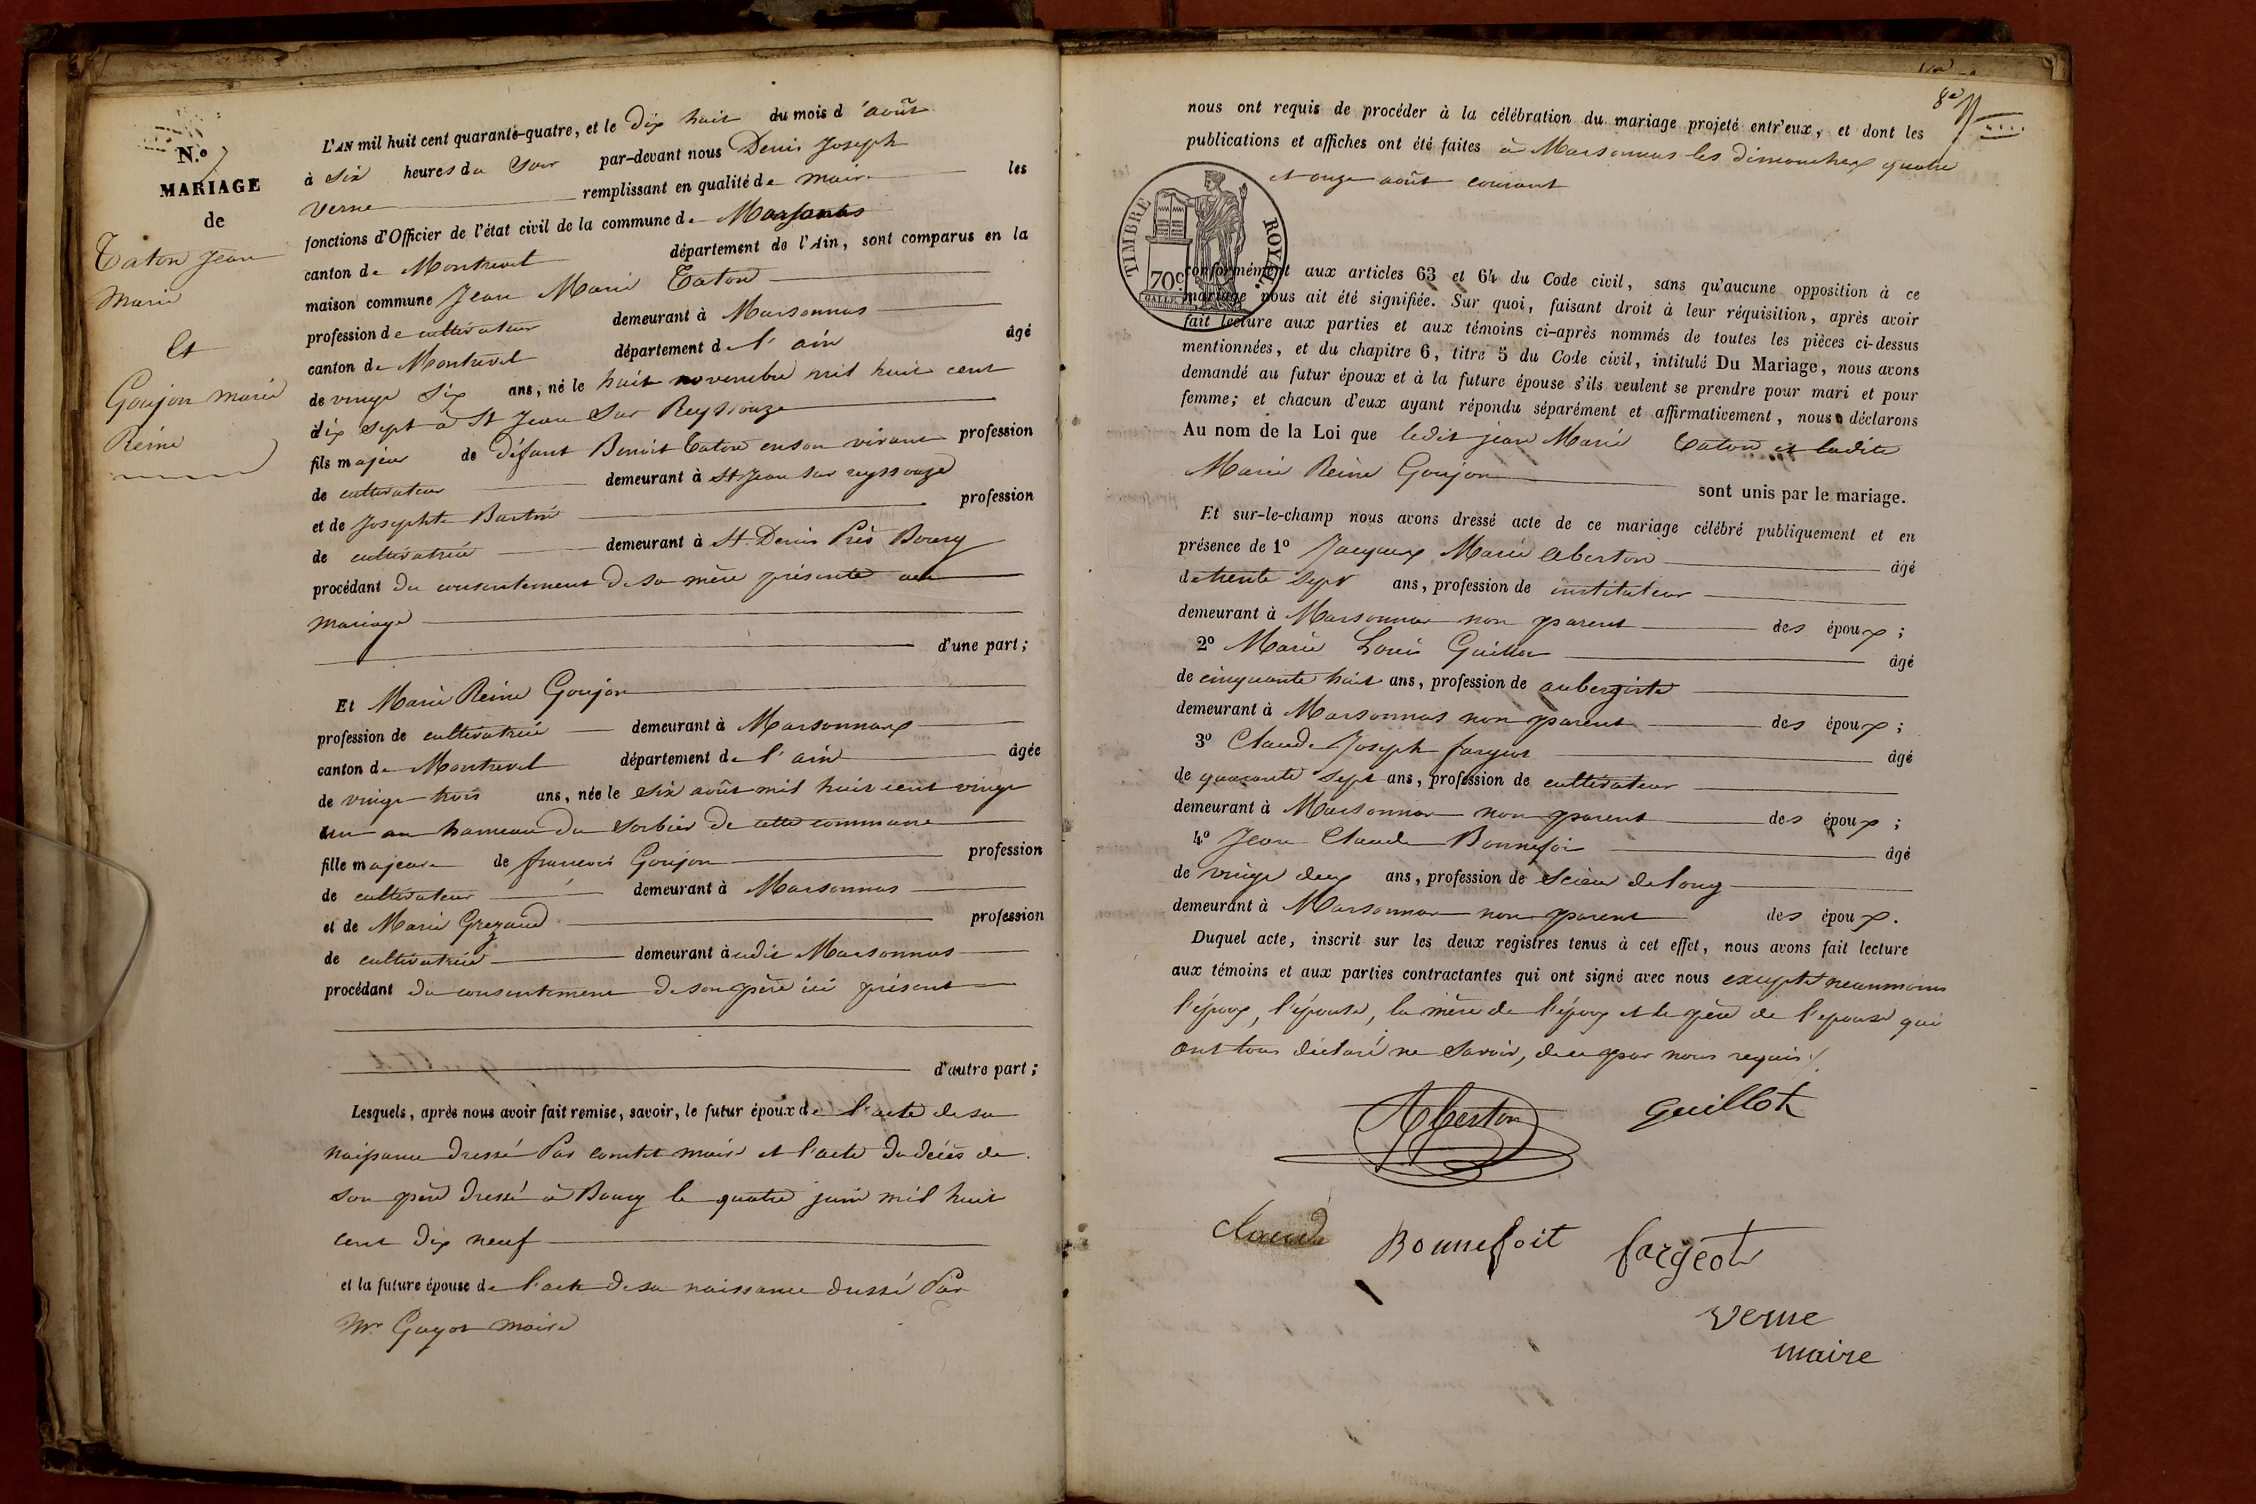 N.º 7
MARIAGE
de
Caton Jean
Marie
Et
Goujon Marie
Reine
L'AN mil huit cent quarante-quatre, et le dix huit du mois d'août
à six heures du soir par-devant nous Denis Joseph
Verne remplissant en qualité de maire les
fonctions d'Officier de l'état civil de la commune de Marsonnas
canton de Montrevel département de l'Ain, sont comparus en la
maison commune Jean Marie Caton
profession de cultivateur demeurant à Marsonnas
canton de Montrevel département de l'ain âgé
de vingt six ans, né le huit novembre mil huit cent
dix sept à St Jean sur Reyssouze
fils majeur de défunt Benoit Caton en son vivant profession
de cultivateur demeurant à St Jean sur reyssouze
et de Josephte profession
de cultivatrice demeurant à St Denis Près Bourg
procédant du consentement de sa mère présente au
mariage
d'une part;
Et Marie Reine Goujon
profession de cultivatrice demeurant à Marsonnax
canton de Montrevel département de l'ain âgée
de vingt trois ans, née le six août mil huit cent vingt
un au hameau du sorbier de cette commune
fille majeure de francois Goujon profession
de cultivateur demeurant à Marsonnas
et de Marie Grezaud profession
de cultivatrice demeurant à udit Marsonnas
procédant du consentement de son père ici présent
d'autre part;
Lesquels, après nous avoir fait remise, savoir, le futur époux de l'acte de sa
naissance dressé Par comtet maire et l'acte du décès de
son père dressé à Bourg le quatre juin mil huit
cent dix neuf
et la future épouse de l'acte de sa naissance dressé Par
Mr Guyot maire
8e
nous ont requis de procéder à la célébration du mariage projeté entr'eux, et dont les
publications et affiches ont été faites à Marsonnas les dimanches quatre
et onze août courant
TIMBRE ROYAL.
70c
conformément aux articles 63 et 64 du Code civil, sans qu'aucune opposition à ce
mariage nous ait été signifiée. Sur quoi, faisant droit à leur réquisition, après avoir
fait lecture aux parties et aux témoins ci-après nommés de toutes les pièces ci-dessus
mentionnées, et du chapitre 6, titre 5 du Code civil, intitulé Du Mariage, nous avons
demandé au futur époux et à la future épouse s'ils veulent se prendre pour mari et pour
femme; et chacun d'eux ayant répondu séparément et affirmativement, nous déclarons
Au nom de la Loi que ledit jean Marie Caton et ladite
Marie Reine Goujon sont unis par le mariage.
Et sur-le-champ nous avons dressé acte de ce mariage célébré publiquement et en
présence de 1º Jacques Marie Aberton âgé
de trente sept ans, profession de instituteur
demeurant à Marsonnas non parent des époux;
2º Marie Louis Guillot âgé
de cinquante huit ans, profession de aubergiste
demeurant à Marsonnas non parent des époux;
3º Claude Joseph fargeot âgé
de quarante sept ans, profession de cultivateur
demeurant à Marsonnas non parent des époux;
4º Jean Claude Bonnefoi âgé
de vingt deux ans, profession de scieur de long
demeurant à Marsonnas non parent des époux.
Duquel acte, inscrit sur les deux registres tenus à cet effet, nous avons fait lecture
aux témoins et aux parties contractantes qui ont signé avec nous excepté neanmoins
l'époux, l'épouse, la mère de l'époux et le père de l'epouse qui
ont tous déclaré ne savoir, de ce par nous requis
Aberton
Guillot
Claude Bonnefoit fargeot
Verne
maire